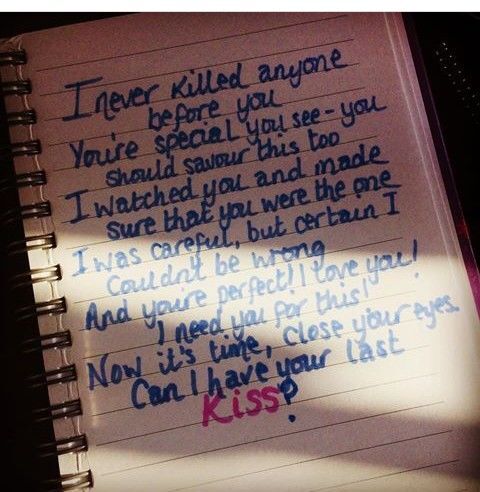 I never killed anyone
before you
You're special you see - you
should savour this too
I watched you and made
sure that you were the one
I was careful, but certain I
Couldn't be wrong
And you're perfect! I love you!
I need you for this!
Now it's time, close your eyes.
Can I have your last
Kiss?